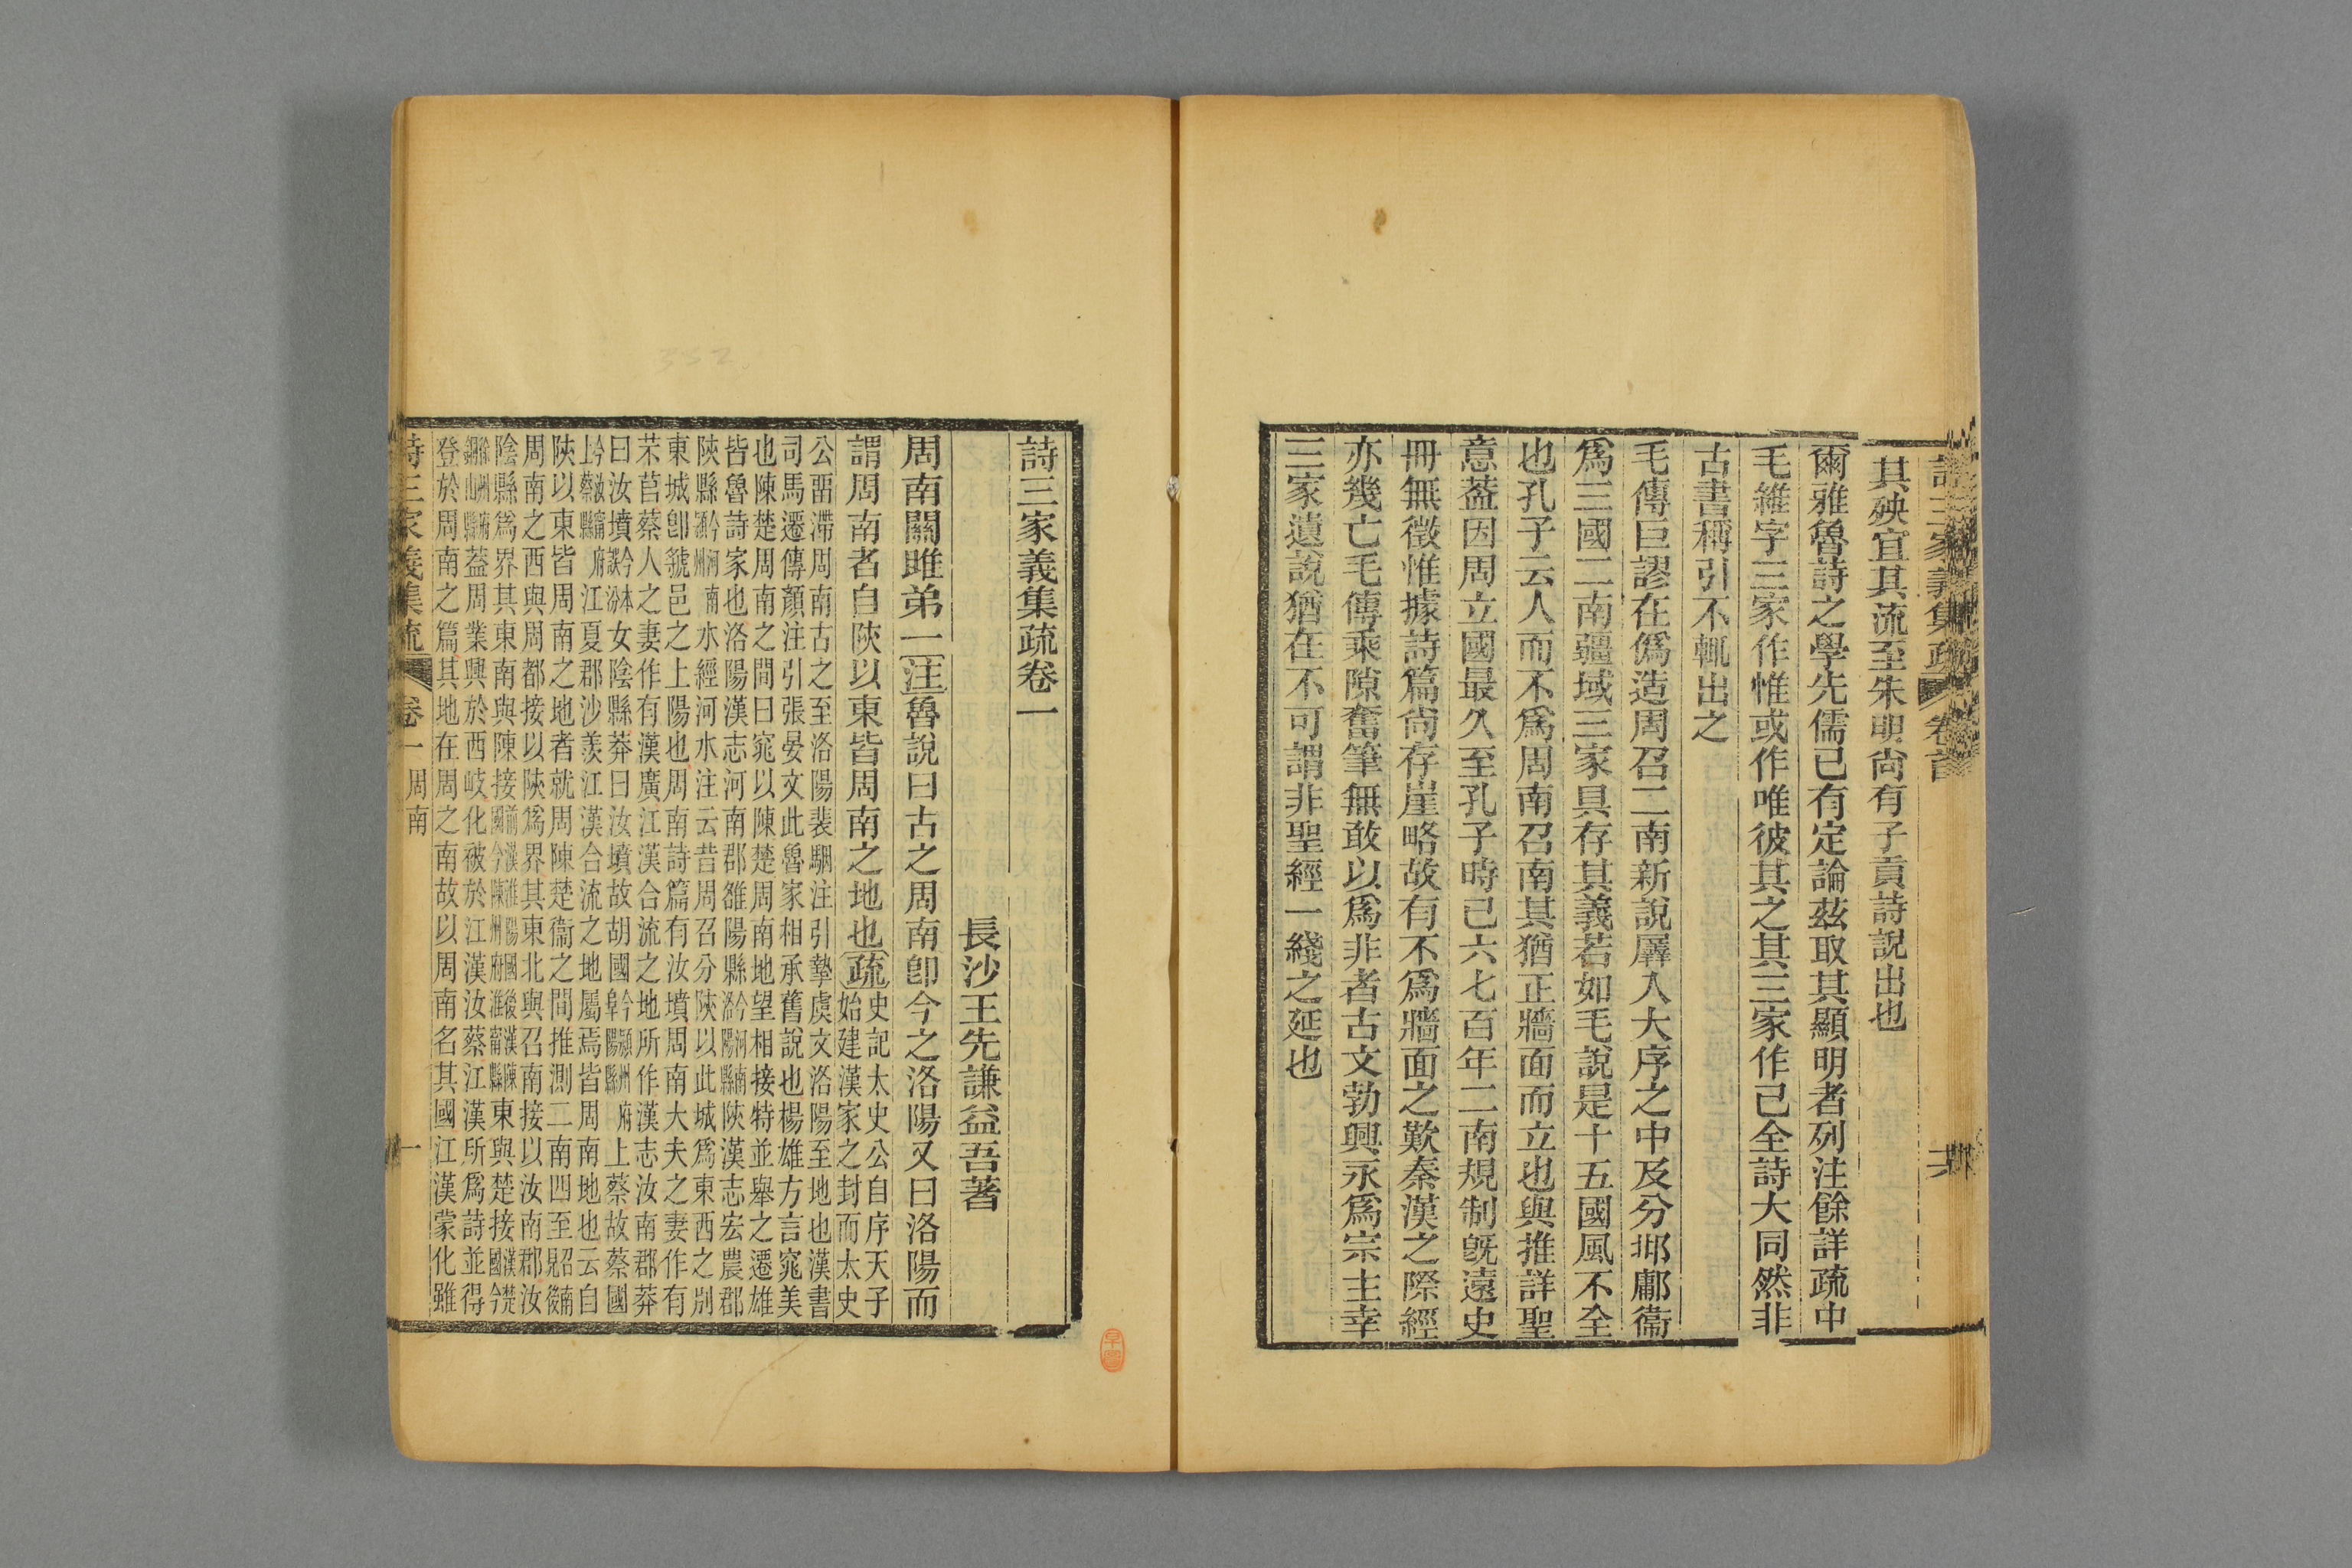 詩三家義集疏 卷首
其殃宜其流至朱明尙有子貢詩說出也
爾雅魯詩之學先儒已有定論茲取其顯明者列注餘詳疏中
毛維字三家作惟或作唯彼其之其三家作己全詩大同然非
古書稱引不輒出之
毛傳巨謬在僞造周召二南新說羼入大序之中及分邶鄘衞
爲三國二南疆域三家具存其義若如毛說是十五國風不全
也孔子云人而不爲周南召南其猶正牆面而立也與推詳聖
意葢因周立國最久至孔子時已六七百年二南規制旣遠史
冊無徵惟據詩篇尙存崖略故有不爲牆面之歎秦漢之際經
亦幾亡毛傳乘隙奮筆無敢以爲非者古文勃興永爲宗主幸
三家遺說猶在不可謂非聖經一綫之延也
詩三家義集疏卷一
長沙王先謙益吾著
周南關雎弟一注魯說曰古之周南卽今之洛陽又曰洛陽而
謂周南者自陝以東皆周南之地也疏史記太史公自序天子
始建漢家之封而太史
公畱滯周南古之至洛陽裴駰注引摯虞文洛陽至地也漢書
司馬遷傳顏注引張晏文此魯家相承舊說也楊雄方言窕美
也陳楚周南之間曰窕以陳楚周南地望相接特並舉之遷雄
皆魯詩家也洛陽漢志河南郡雒陽縣今河南洛陽縣陝漢志宏農郡
陝縣今河南陝州水經河水注云昔周召分陝以此城爲東西之別
東城卽虢邑之上陽也周南詩篇有汝墳周南大夫之妻作有
芣苢蔡人之妻作有漢廣江漢合流之地所作漢志汝南郡莽
曰汝墳今本汝墳誤汾女陰縣莽曰汝墳故胡國今潁州府阜陽縣上蔡故蔡國
今汝甯府上蔡縣江夏郡沙羨江漢合流之地屬焉皆周南地也云自
陝以東皆周南之地者就周陳楚衞之間推測二南四至見召南後
周南之西與周都接以陝爲界其東北與召南接以汝南郡汝
陰縣爲界其東南與陳接前漢淮陽國後漢陳國今陳州府淮甯縣東與楚接漢楚國今
徐州府銅山縣葢周業興於西岐化被於江漢汝蔡江漢所爲詩並得
登於周南之篇其地在周之南故以周南名其國江漢蒙化雖
詩三家義集疏 卷一 周南 一
332